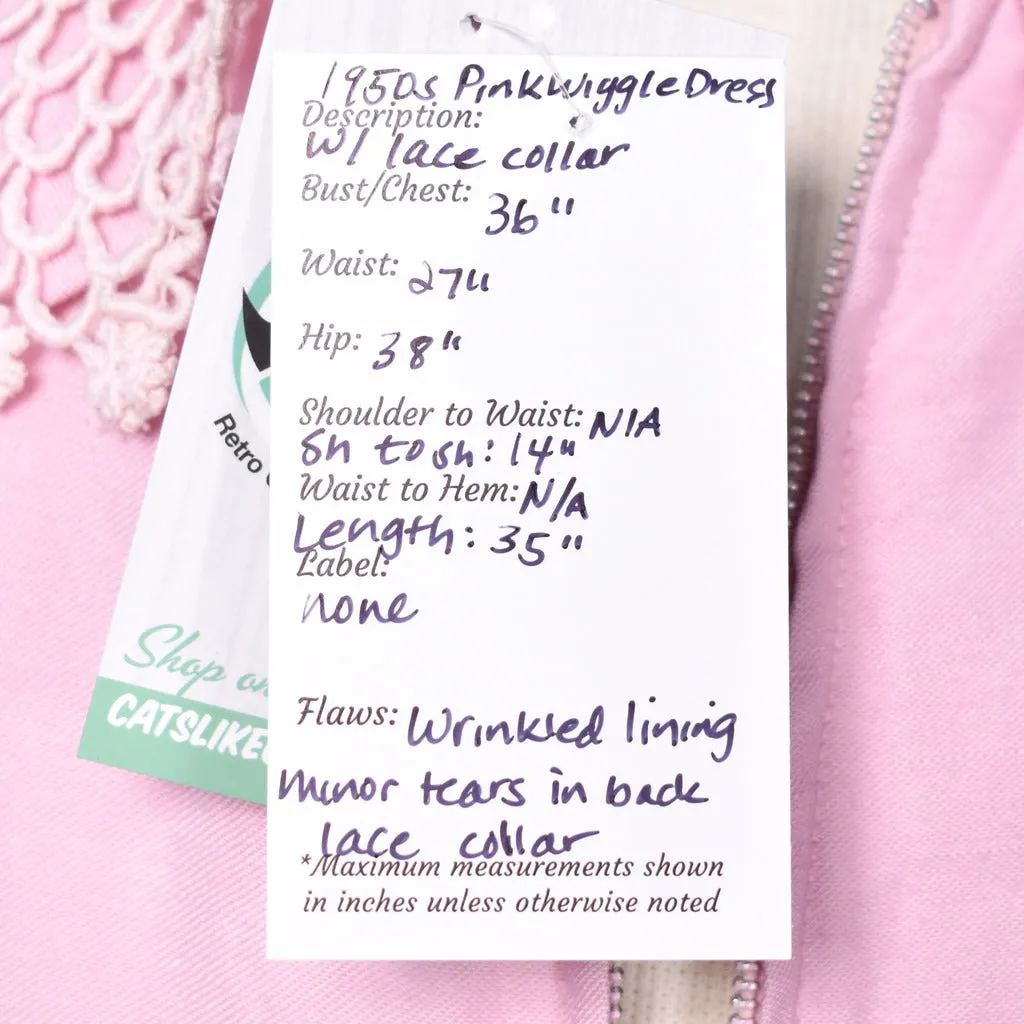 1950s Pink Wiggle Dress
Description:
W/ lace collar
Bust/Chest: 36"
Waist: 27"
Hip: 38"
Shoulder to Waist: N/A
Sh to sh: 14"
Waist to Hem: N/A
Length: 35"
Label:
none
Flaws: Wrinkled lining
minor tears in back
lace collar
*Maximum measurements shown
in inches unless otherwise noted
Retro
Shop on
CATSLIKE